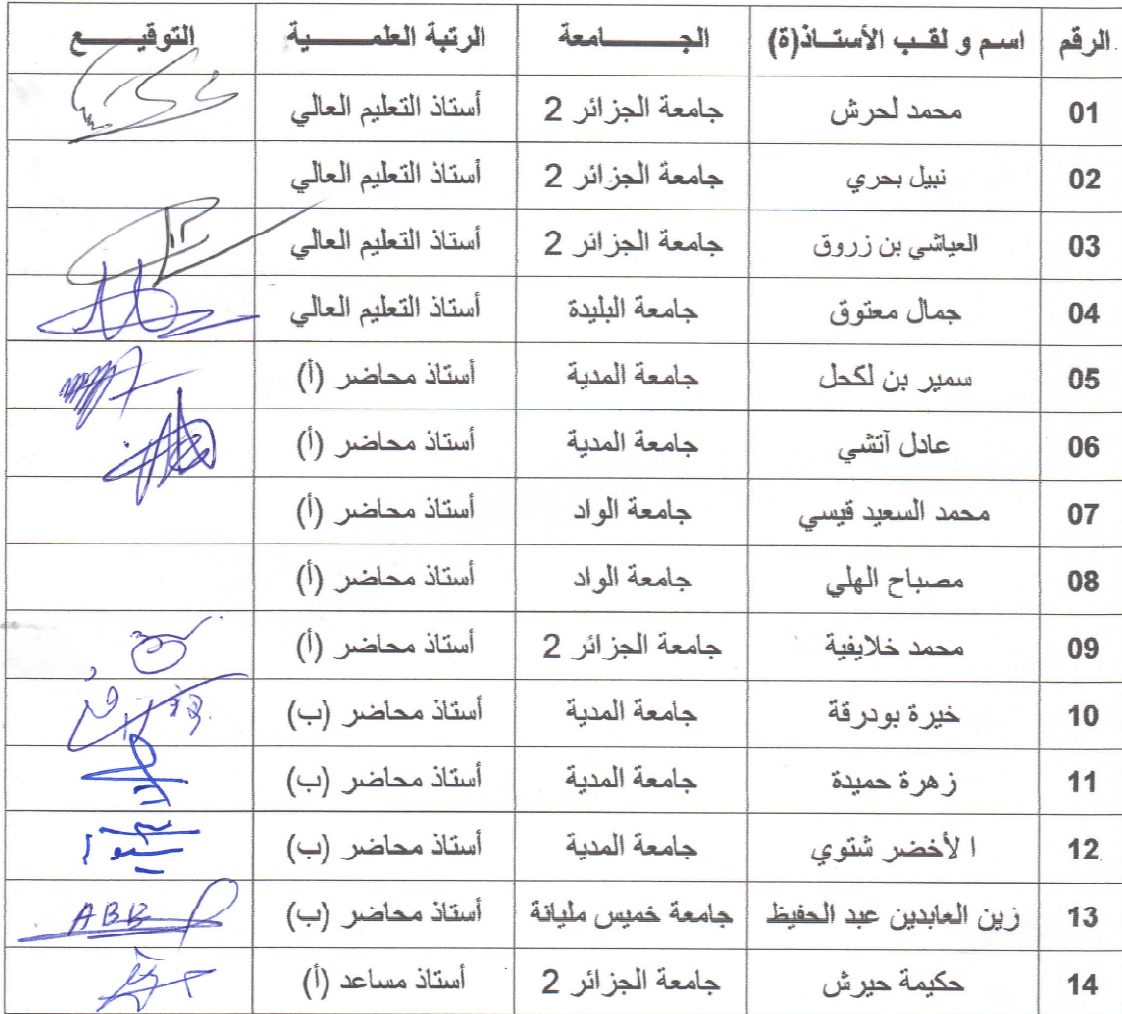 الرقم اسم و لقب الأستاذ(ة) الجامعة الرتبة العلمية التوقيع
01 محمد لحرش جامعة الجزائر 2 أستاذ التعليم العالي
02 نبيل بحري جامعة الجزائر 2 أستاذ التعليم العالي
03 العياشي بن زروق جامعة الجزائر 2 أستاذ التعليم العالي
04 جمال معتوق جامعة البليدة أستاذ التعليم العالي
05 سمير بن لكحل جامعة المدية أستاذ محاضر (أ)
06 عادل آتشي جامعة المدية أستاذ محاضر (أ)
07 محمد السعيد قيسي جامعة الواد أستاذ محاضر (أ)
08 مصباح الهلي جامعة الواد أستاذ محاضر (أ)
09 محمد خلايفية جامعة الجزائر 2 أستاذ محاضر (أ)
10 خيرة بودرقة جامعة المدية أستاذ محاضر (ب)
11 زهرة حميدة جامعة المدية أستاذ محاضر (ب)
12 ا لأخضر شتوي جامعة المدية أستاذ محاضر (ب)
13 زين العابدين عبد الحفيظ جامعة خميس مليانة أستاذ محاضر (ب) ABB
14 حكيمة حيرش جامعة الجزائر 2 أستاذ مساعد (أ)